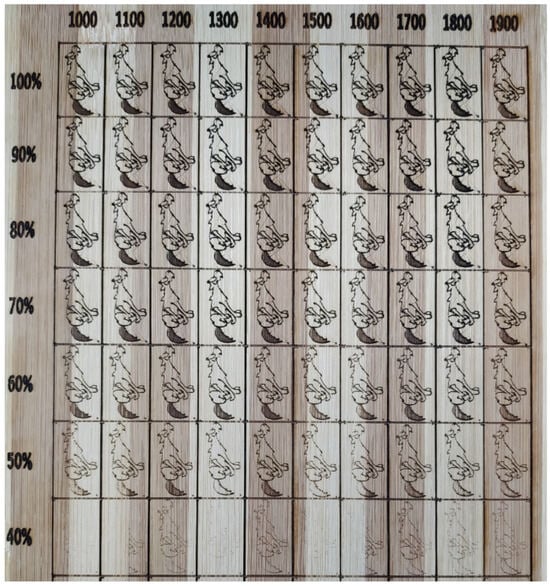 1000 1100 1200 1300 1400 1500 1600 1700 1800 1900
100%
90%
80%
70%
60%
50%
40%